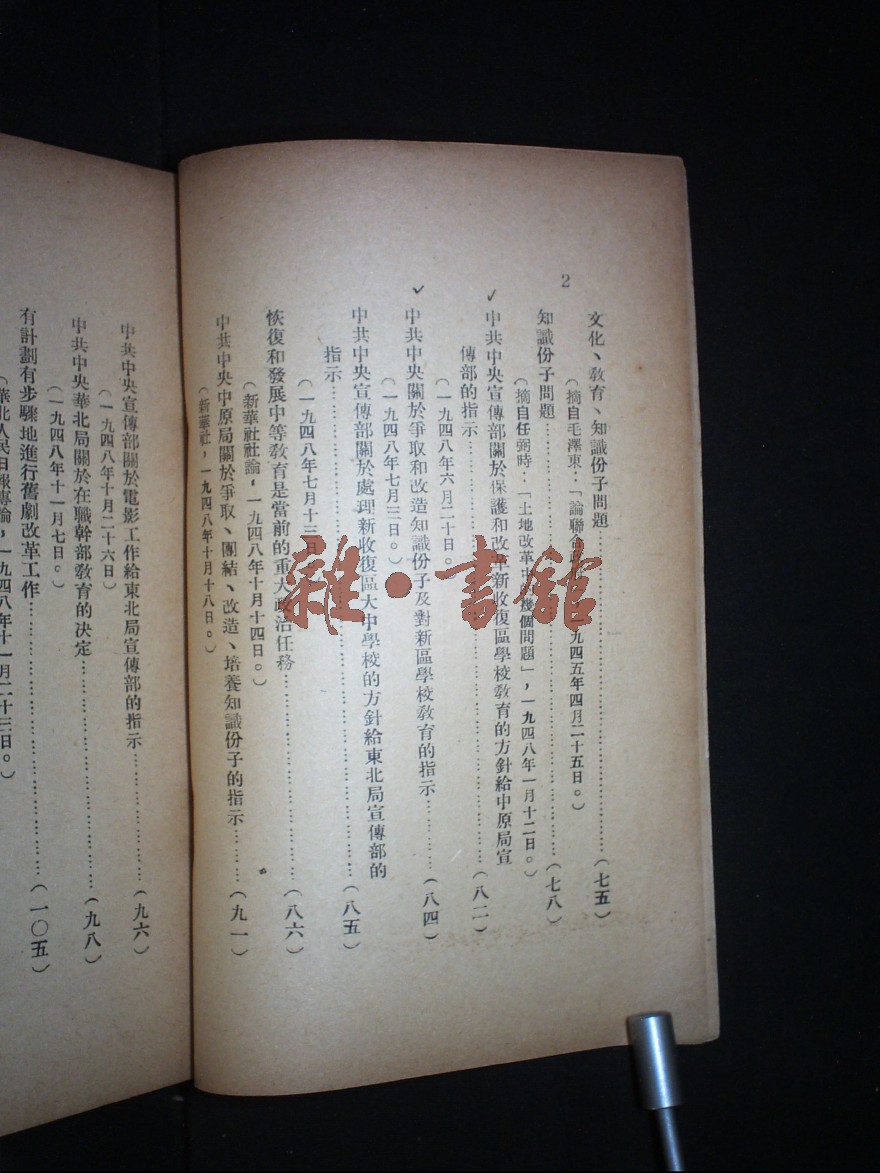 2
文化、教育、知識份子問題……(七五)
(摘自毛澤東：「論聯合 一九四五年四月二十五日。)
知識份子問題……(七八)
(摘自任弼時：「土地改革中 幾個問題」，一九四八年一月十二日。)
✓中共中央宣傳部關於保護和改革新收復區學校教育的方針給中原局宣
傳部的指示……(八二)
(一九四八年六月二十日。)
✓中共中央關於爭取和改造知識份子及對新區學校教育的指示……(八四)
(一九四八年七月三日。)
中共中央宣傳部關於處理新收復區大中學校的方針給東北局宣傳部的
指示……(八五)
(一九四八年七月十三日
恢復和發展中等教育是當前的重大政治任務……(八六)
(新華社社論，一九四八年十月十四日。)
中共中央中原局關於爭取、團結、改造、培養知識份子的指示……(九一)
(新華社，一九四八年十月十八日。)
中共中央宣傳部關於電影工作給東北局宣傳部的指示……(九六)
(一九四八年十月二十六日)
中共中央華北局關於在職幹部教育的決定……(九八)
(一九四八年十一月七日。)
有計劃有步驟地進行舊劇改革工作……(一〇五)
(華北人民日報專論，一九四八年十一月二十三日。)
雜·書館